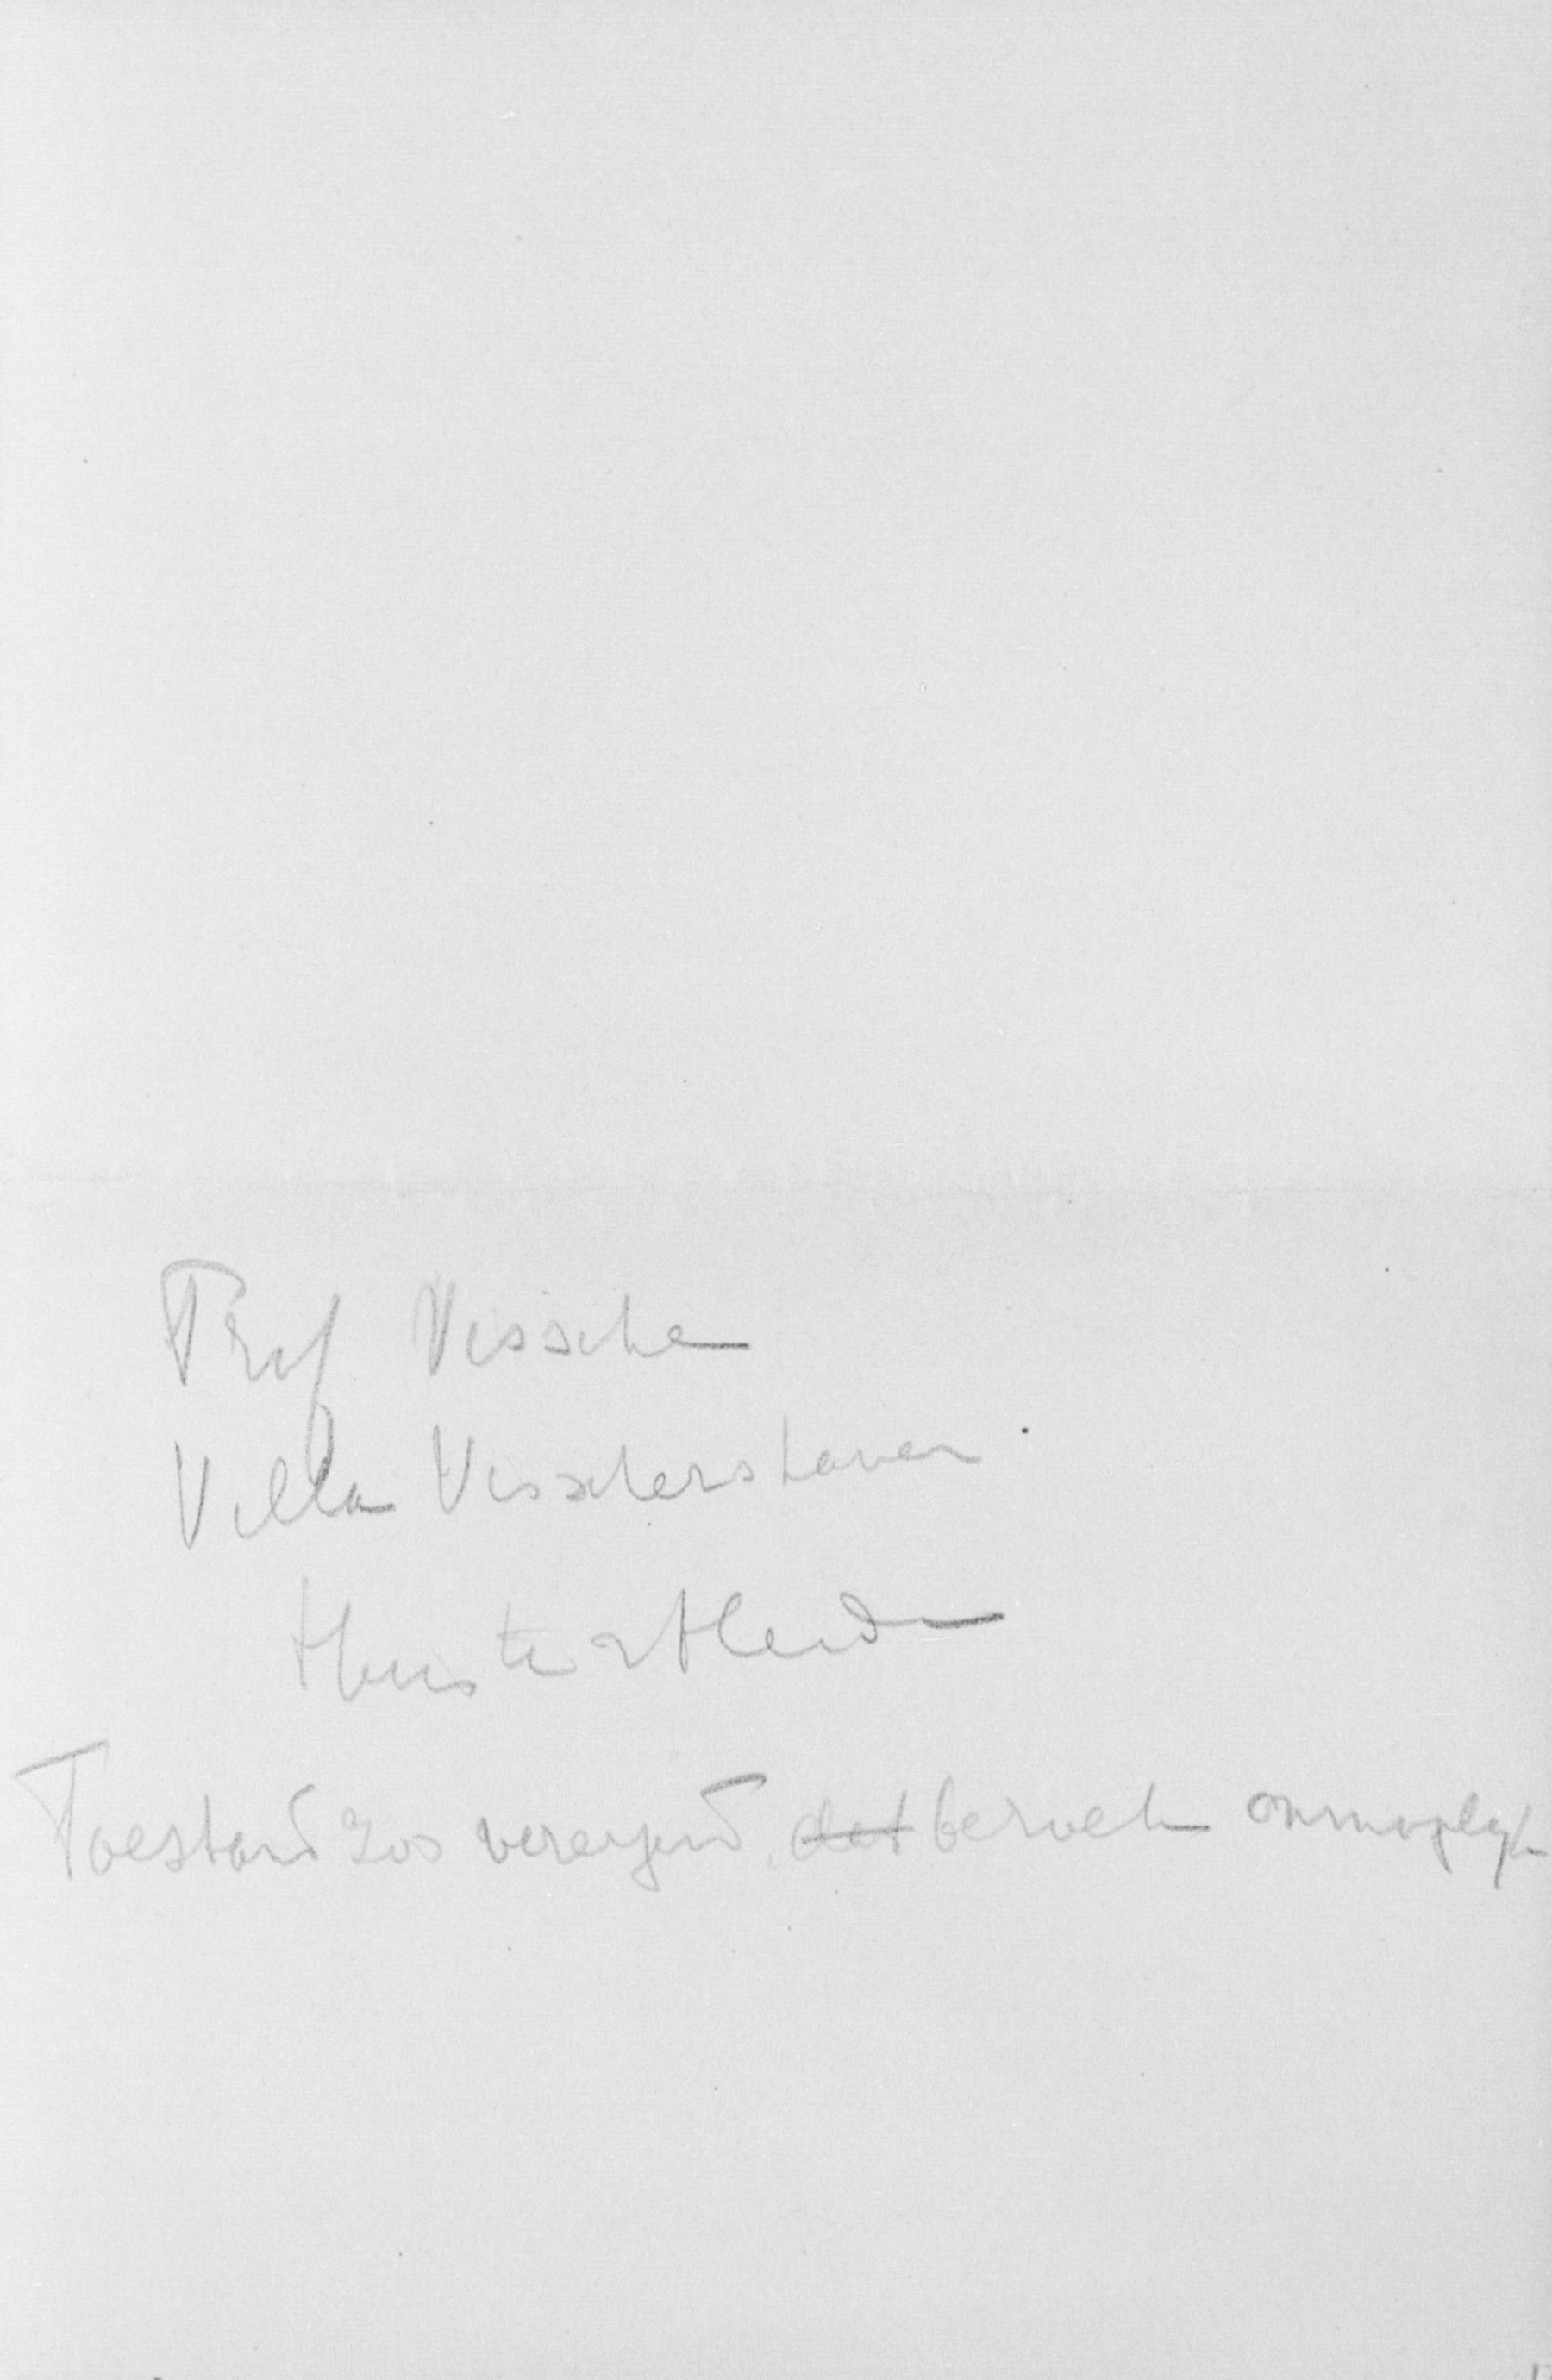 Prof Vissche
Villa Visschershaven
Huis ter Heide
Toestand zoo verergerd, dat bezoek onmogelyk